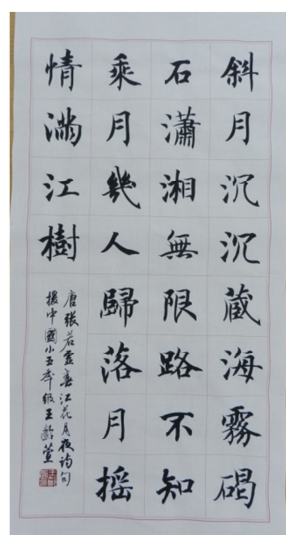 斜月沉沉藏海霧碣
石瀟湘無限路不知
乘月幾人歸落月搖
情滿江樹
唐張若虛春江花月夜詩句
援中國小五年級王齡萱